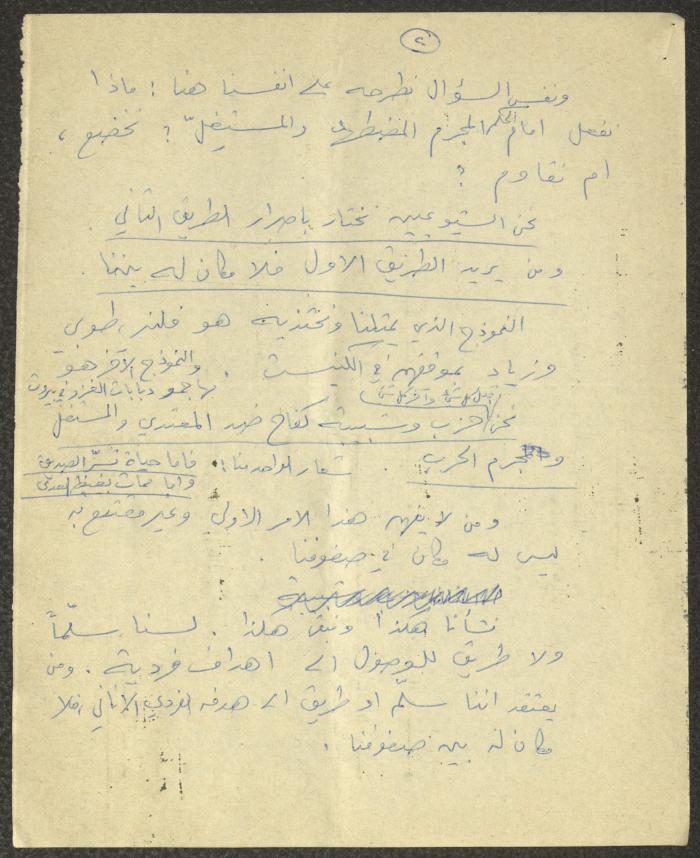 ٢
ونفس السؤال نطرحه على انفسنا هنا : ماذا
نفعل امام الحكم المجرم المضطهِد والمستغِلّ ؟ نخضع ،
ام نقاوم ؟
نحن الشيوعيين نختار باصرار الطريق الثاني
ومن يريد الطريق الاول فلا مكان له بيننا .
النموذج الذي يمثلنا ونحتذيه هو فلنر، طوبي
وزياد بموقفهم في الكنيست . والنموذج الآخر هو
مهاجمو دبابات الغزو في بيروت
(قبل كل شيء وآخر كل شيء)
نحن حزب وشبيبة كفاح ضد المعتدي والمستغل
ومجرم الحرب . شعار الواحد منا : فاما حياة تسرّ الصديق
واما ممات يغيظ العدى
ومن لا يفهم هذا الامر الاولي وغير مقتنع به
ليس له مكان في صفوفنا .
نشأنا هكذا ونبقى هكذا . لسنا سلّماً
ولا طريق للوصول الى اهداف فردية . ومن
يعتقد اننا سلّم او طريق الى هدفه الفردي الاناني ، فلا
مكان له بين صفوفنا .